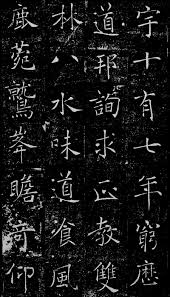 宇十有七年窮歷
道邦詢求正教雙
林八水味道飡風
鹿苑鷲峯瞻奇仰